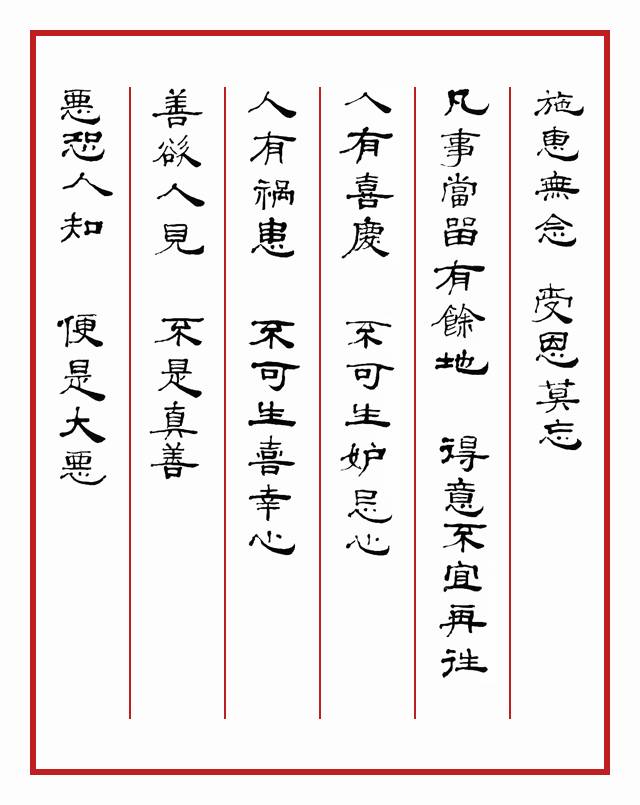 施惠無念 受恩莫忘
凡事當留有餘地 得意不宜再往
人有喜慶 不可生妒忌心
人有禍患 不可生喜幸心
善欲人見 不是真善
惡恐人知 便是大惡